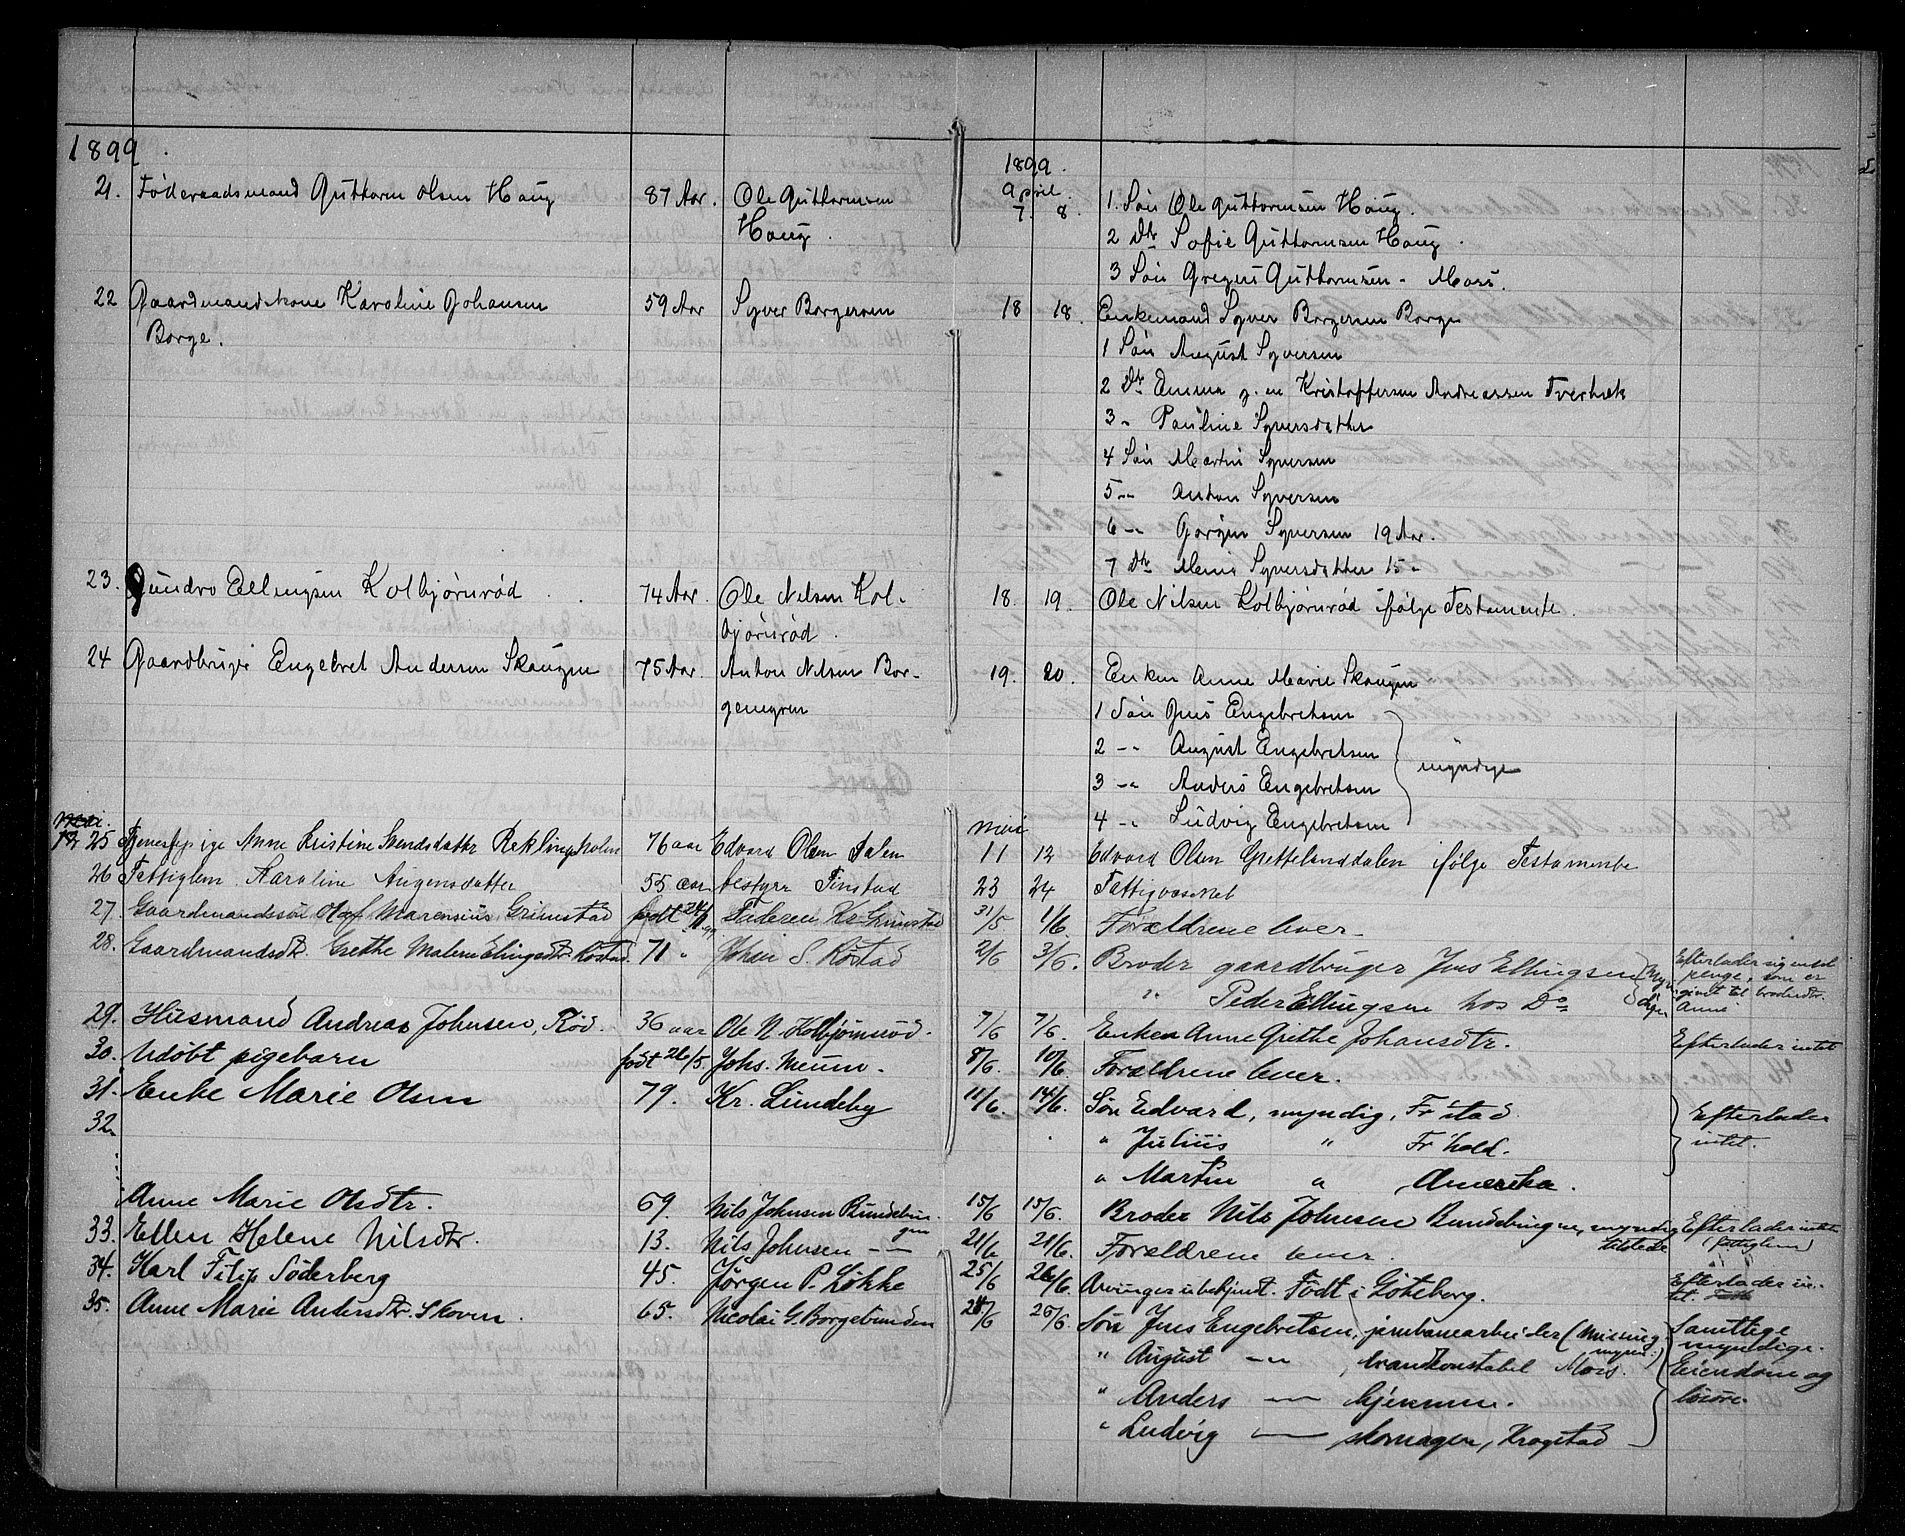 1899.
1899.
April.
21. Föderaadsmand Guttorm Olsen Haug 87 Aar. Ole Guttormsen 7. 8. 1. Søn Ole Guttormsen Haug.
Haug. 2 Dtr Sofie Guttormsen Haug.
3 Søn Gregers Guttormsen - Moss.
22 Gaardmandskone Karoline Johansen 59 Aar Syver Borgersen 18 18. Enkemand Syver Borgersen Borge
Borge. 1 Søn August Syversen
2 Dtr Emma g. m Kristoffersen Andreassen Tverbæk
3 „ Pauline Syversdatter
4 Søn Martin Syversen
5 -„- Anton Syversen
6 -„- Jørgen Syversen 19 Aar.
7 Dtr Mina Syversdatter 15 „
23. Gundro Ellingsen Kolbjørnrød 74 Aar. Ole Nilsen Kol- 18. 19. Ole Nilsen Kolbjørnrød ifølge Testamente.
bjørnrød.
24 Gaardbruger Engebret Andersen Skaugen 75 Aar. Anton Nilsen Bor- 19. 20. Enken Anne Marie Skaugen
gengren 1 Søn Jens Engebretsen
2 -„- August Engebretsen myndige
3 -„- Anders Engebretsen
4 -„- Ludvig Engebretsen
Mai. mai
12 25 Tjenestepige Anne Kristine Svendsdatter Reklingsholen 76 aar Edvard Olsen Dalen 11 12 Edvard Olsen Grettelanddalen ifølge Testamente
26 Fattiglem Karoline Augensdatter 55 aar bestyrer Finstad 23 24 Fattigvæsenet
27. Gaardmandssøn Olaf Marensius Grimstad født 24/1 99 Faderen Kr. Grimstad 31/5 1/6. Forældrene lever.
28. Gaardmandsdt. Grethe Malene Elingsdtr. Røstad. 71 „ Johan S. Røstad 2/6 3/6. Broder gaardbruger Jens Ellingsen Myn- Efterlader sig endel
„ Peder Ellingsen hos Do diger penge, som er
givet til broderdtr.
Anne
29. Husmand Andreas Johnsen Rød. 36 aar Ole N. Kolbjørnrød. 7/6 7/6. Enken Anne Grethe Johansdtr. Efterlader intet
30. Udøbt pigebarn født 26/5. Johs. Meum. 8/6. 10/6. Forældrene lever.
31. Enke Marie Olsen 79. Kr. Lundeby 11/6. 14/6. Søn Edvard, myndig, Fr stad. Efterlader
32. „ Julius „ Fr hald. intet.
„ Martin „ Amerika.
Anne Marie Olsdtr. 69. Nils Johnsen Bundebun- 15/6 15/6. Broder Nils Johnsen Bundebungen, myndig Efterlader intet
gen tilstede (fattiglem)
33. Ellen Helene Nilsdtr. 13. Nils Johnsen -„- 21/6 21/6. Forældrene lever.
34. Karl Filip Söderberg 45. Jørgen P. Løkke 25/6 26/6. Arvinger ubekjendt. Født i Göteborg. Efterlader in-
tet.
35. Anne Marie Andersdtr. Skoven. 65. Nicolai G. Borgebunden 25/6 26/6. Søn Jens Engebretsen, jernbanearbeider Samtlige
„ August -„- , brandkonstabel Moss. myndige.
„ Anders -„- hjemme. Eiendom og
„ Ludvig -„- skomager, Krogstad løsøre.